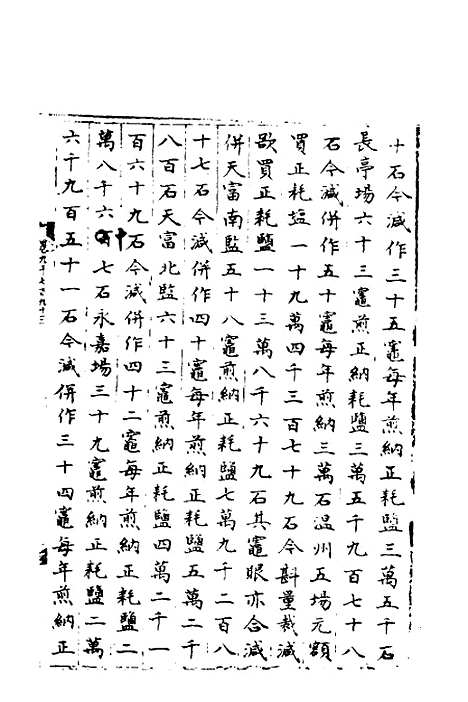 十石今減作三十五竈每年煎納正耗鹽三萬五千石
長亭場六十三竈煎正納耗鹽三萬五千九百七十八
石今減併作五十竈每年煎納三萬石温州五場元額
買正耗塩一十九萬四千三百七十九石今斟量裁減
欲買正耗鹽一十三萬八千六十九石其竈眼亦合減
併天富南監五十八竈煎納正耗鹽七萬九千二百八
十七石今減併作四十竈每年煎納正耗鹽五萬二千
八百石天富北監六十三竈煎納正耗鹽四萬二千一
百六十九石今減併作四十二竈每年煎納正耗鹽二
萬八千六百十七石永嘉場三十九竈煎納正耗鹽二萬
六千九百五十一石今減併作三十四竈每年煎納正